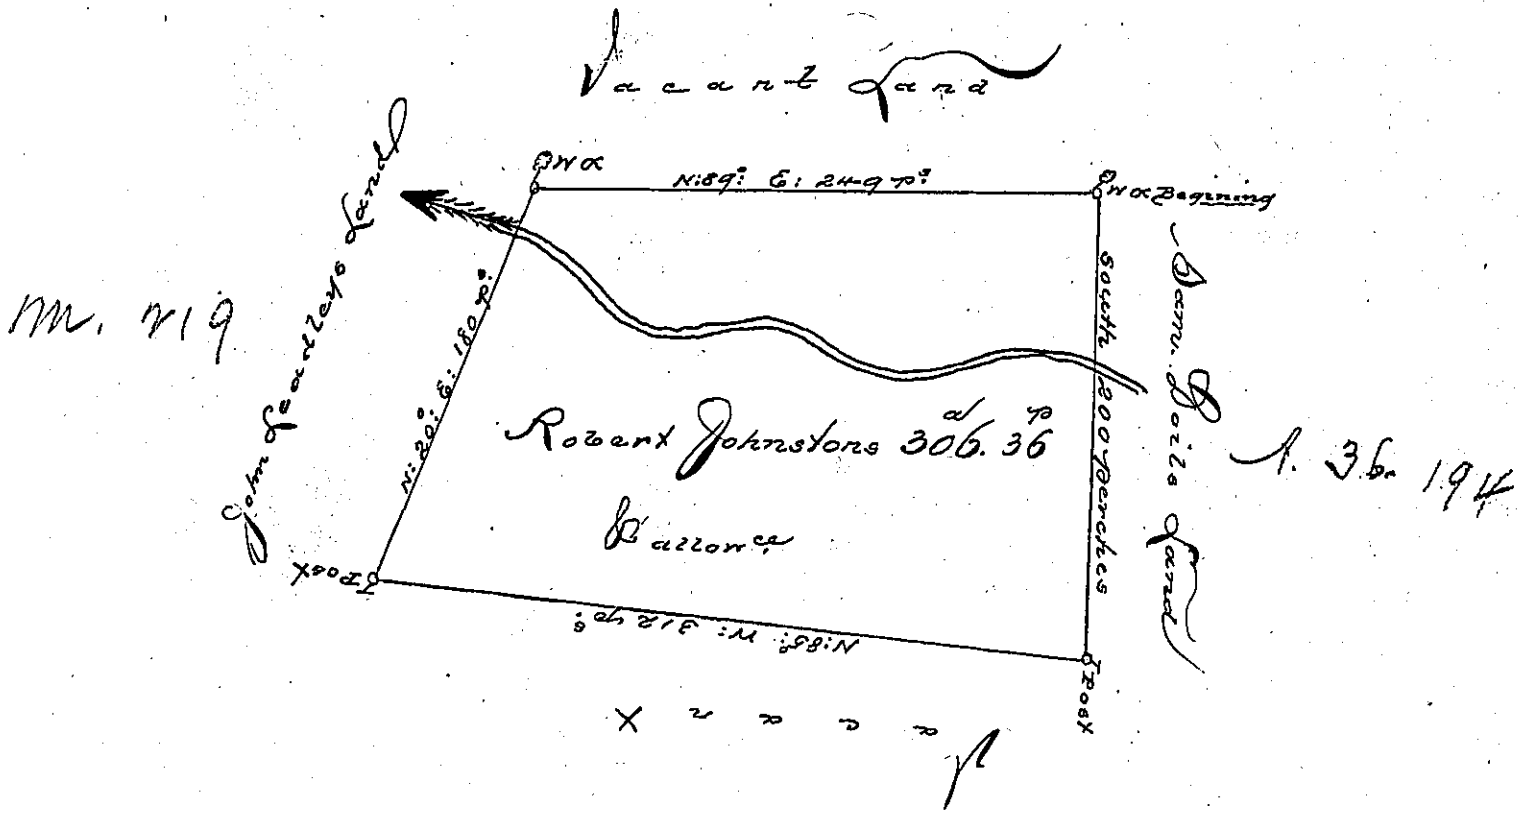 Vacant Land
WO
N:89°: E: 249 ps:
WO Beginning
John Lealleys Land
N: 20°: E: 180 ps:
South 200 perches
Sam. Boils Land
Robert Johnstons 306. 36
a p
& allowce
Post
N:85°: W: 312 ps:
Post
Vacant